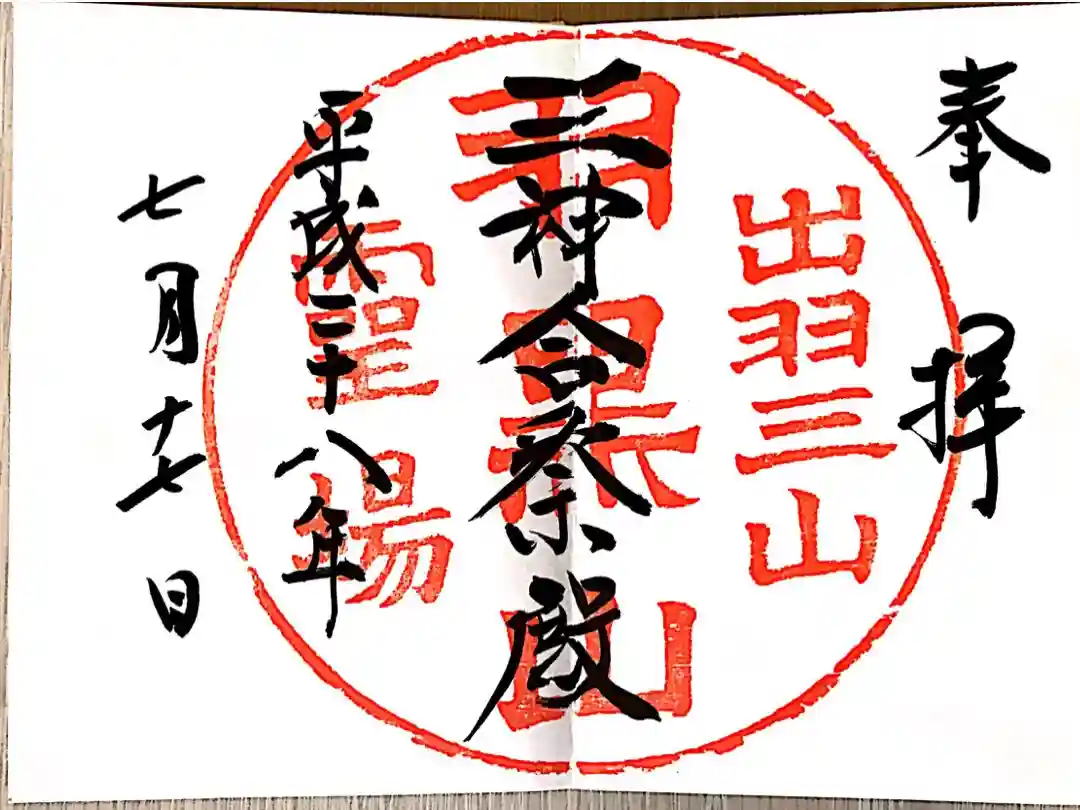 奉拝
出羽三山
三神合祭殿
羽黒山
平成二十八年
霊場
七月十七日